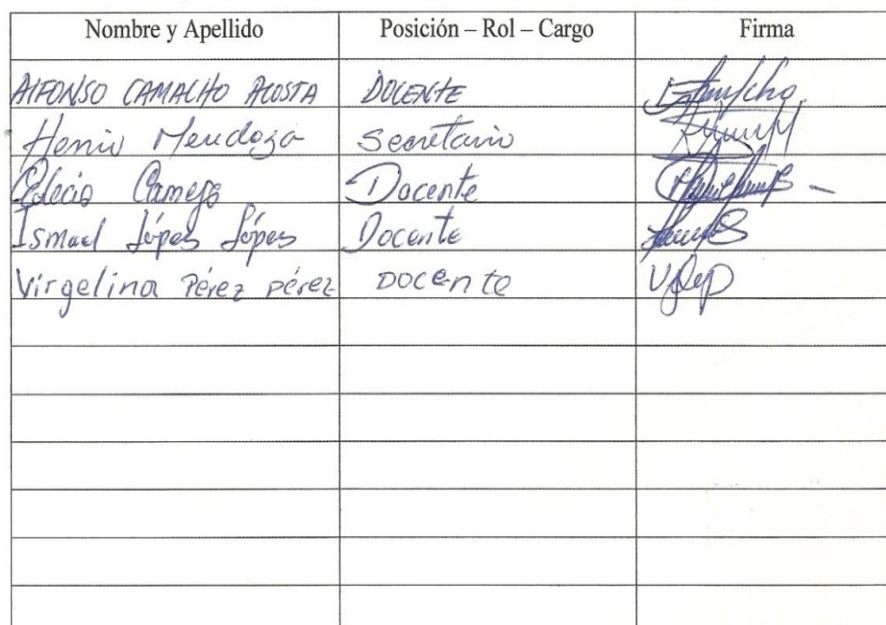 Nombre y Apellido Posición – Rol – Cargo Firma
AlFONSO CAMACHO ACOSTA DOCENTE
Mendoza Secretario
Docente
Ismael López López Docente
Virgelina Pérez Pérez DOCENTE